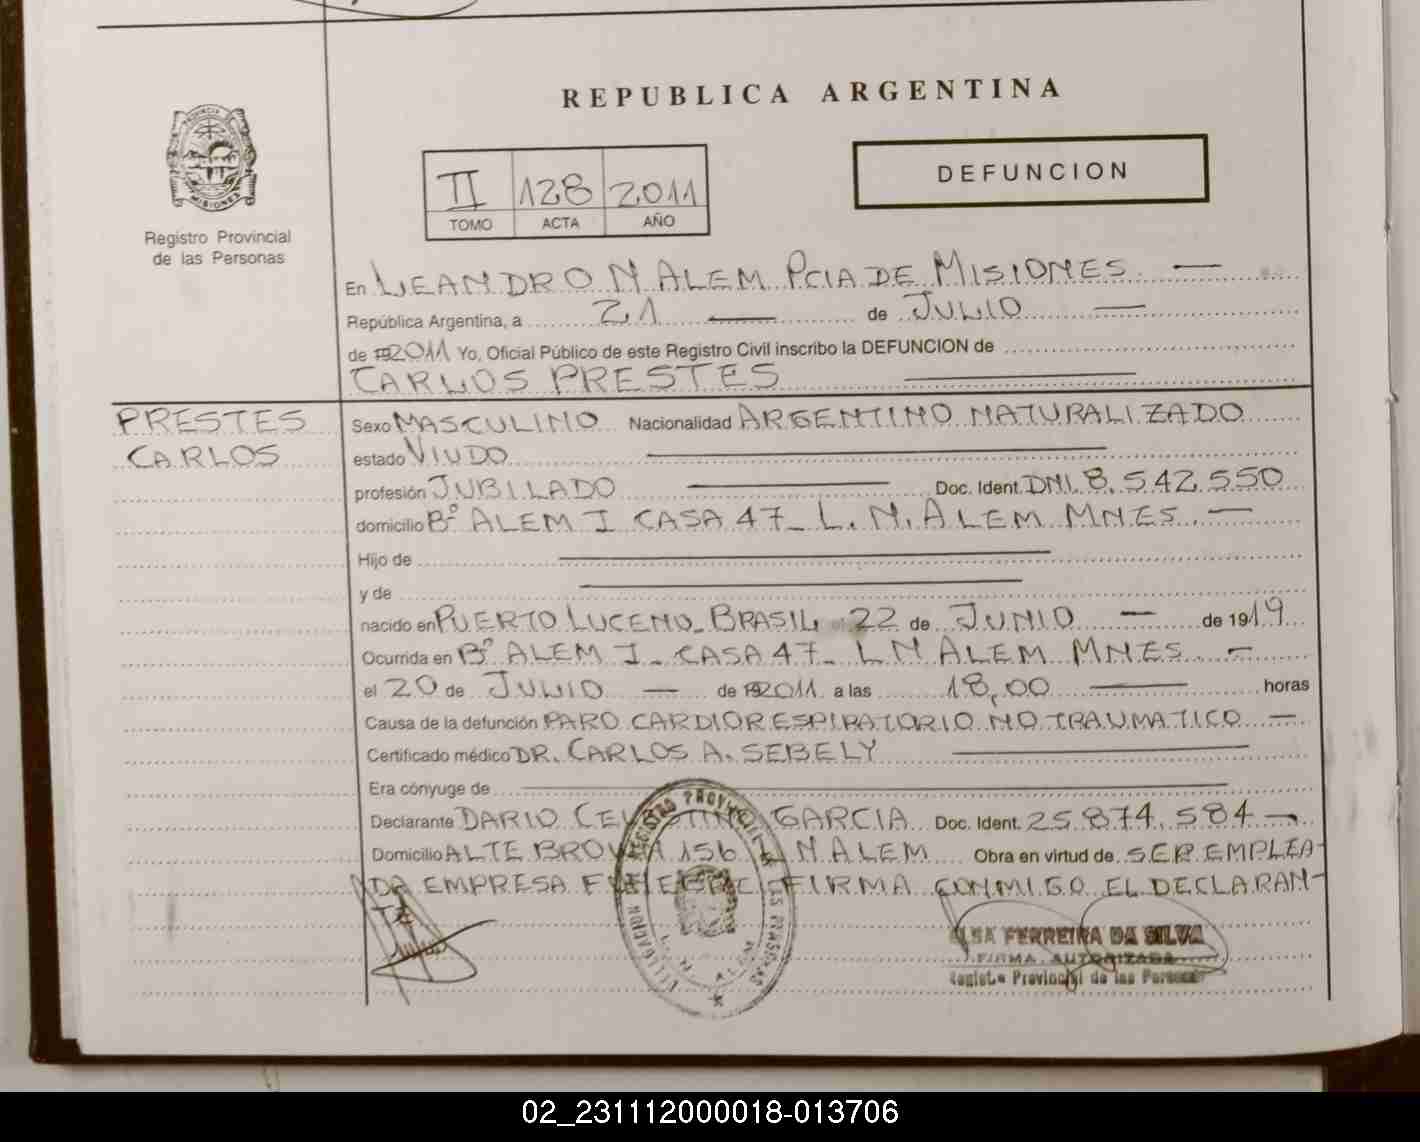 REPUBLICA ARGENTINA
PROVINCIA DE
MISIONES
Registro Provincial
de las Personas
II 128 2011
TOMO ACTA AÑO
DEFUNCION
En LEANDRO N ALEM PCIA DE MISIONES —
República Argentina, a 21 — de JULIO —
de 2011 Yo, Oficial Público de este Registro Civil inscribo la DEFUNCION de
CARLOS PRESTES
PRESTES
CARLOS
Sexo MASCULINO Nacionalidad ARGENTINO NATURALIZADO
estado VIUDO
profesión JUBILADO — Doc. Ident. DNI. 8.542.550
domicilio Bº ALEM I CASA 47_ L. N. ALEM MNES. —
Hijo de
y de
nacido en PUERTO LUCENO_ BRASIL el 22 de JUNIO — de 1919
Ocurrida en Bº ALEM I_ CASA 47_ L N ALEM MNES —
el 20 de JULIO — de 2011 a las 18,00 — horas
Causa de la defunción PARO CARDIORESPIRATORIO NO TRAUMATICO —
Certificado médico DR. CARLOS A. SEBELY
Era cónyuge de
Declarante DARIO GARCIA Doc. Ident. 25.874.584 —
Domicilio ALTE BROWN 156 L N ALEM Obra en virtud de SER EMPLEA-
DO EMPRESA FIRMA CONMIGO EL DECLARAN-
TE
REGISTRO PROVINCIAL DE LAS PERSONAS
DELEGACION
ELSA FERREIRA DA SILVA
FIRMA AUTORIZADA
Registro Provincial de las Personas
02_231112000018-013706